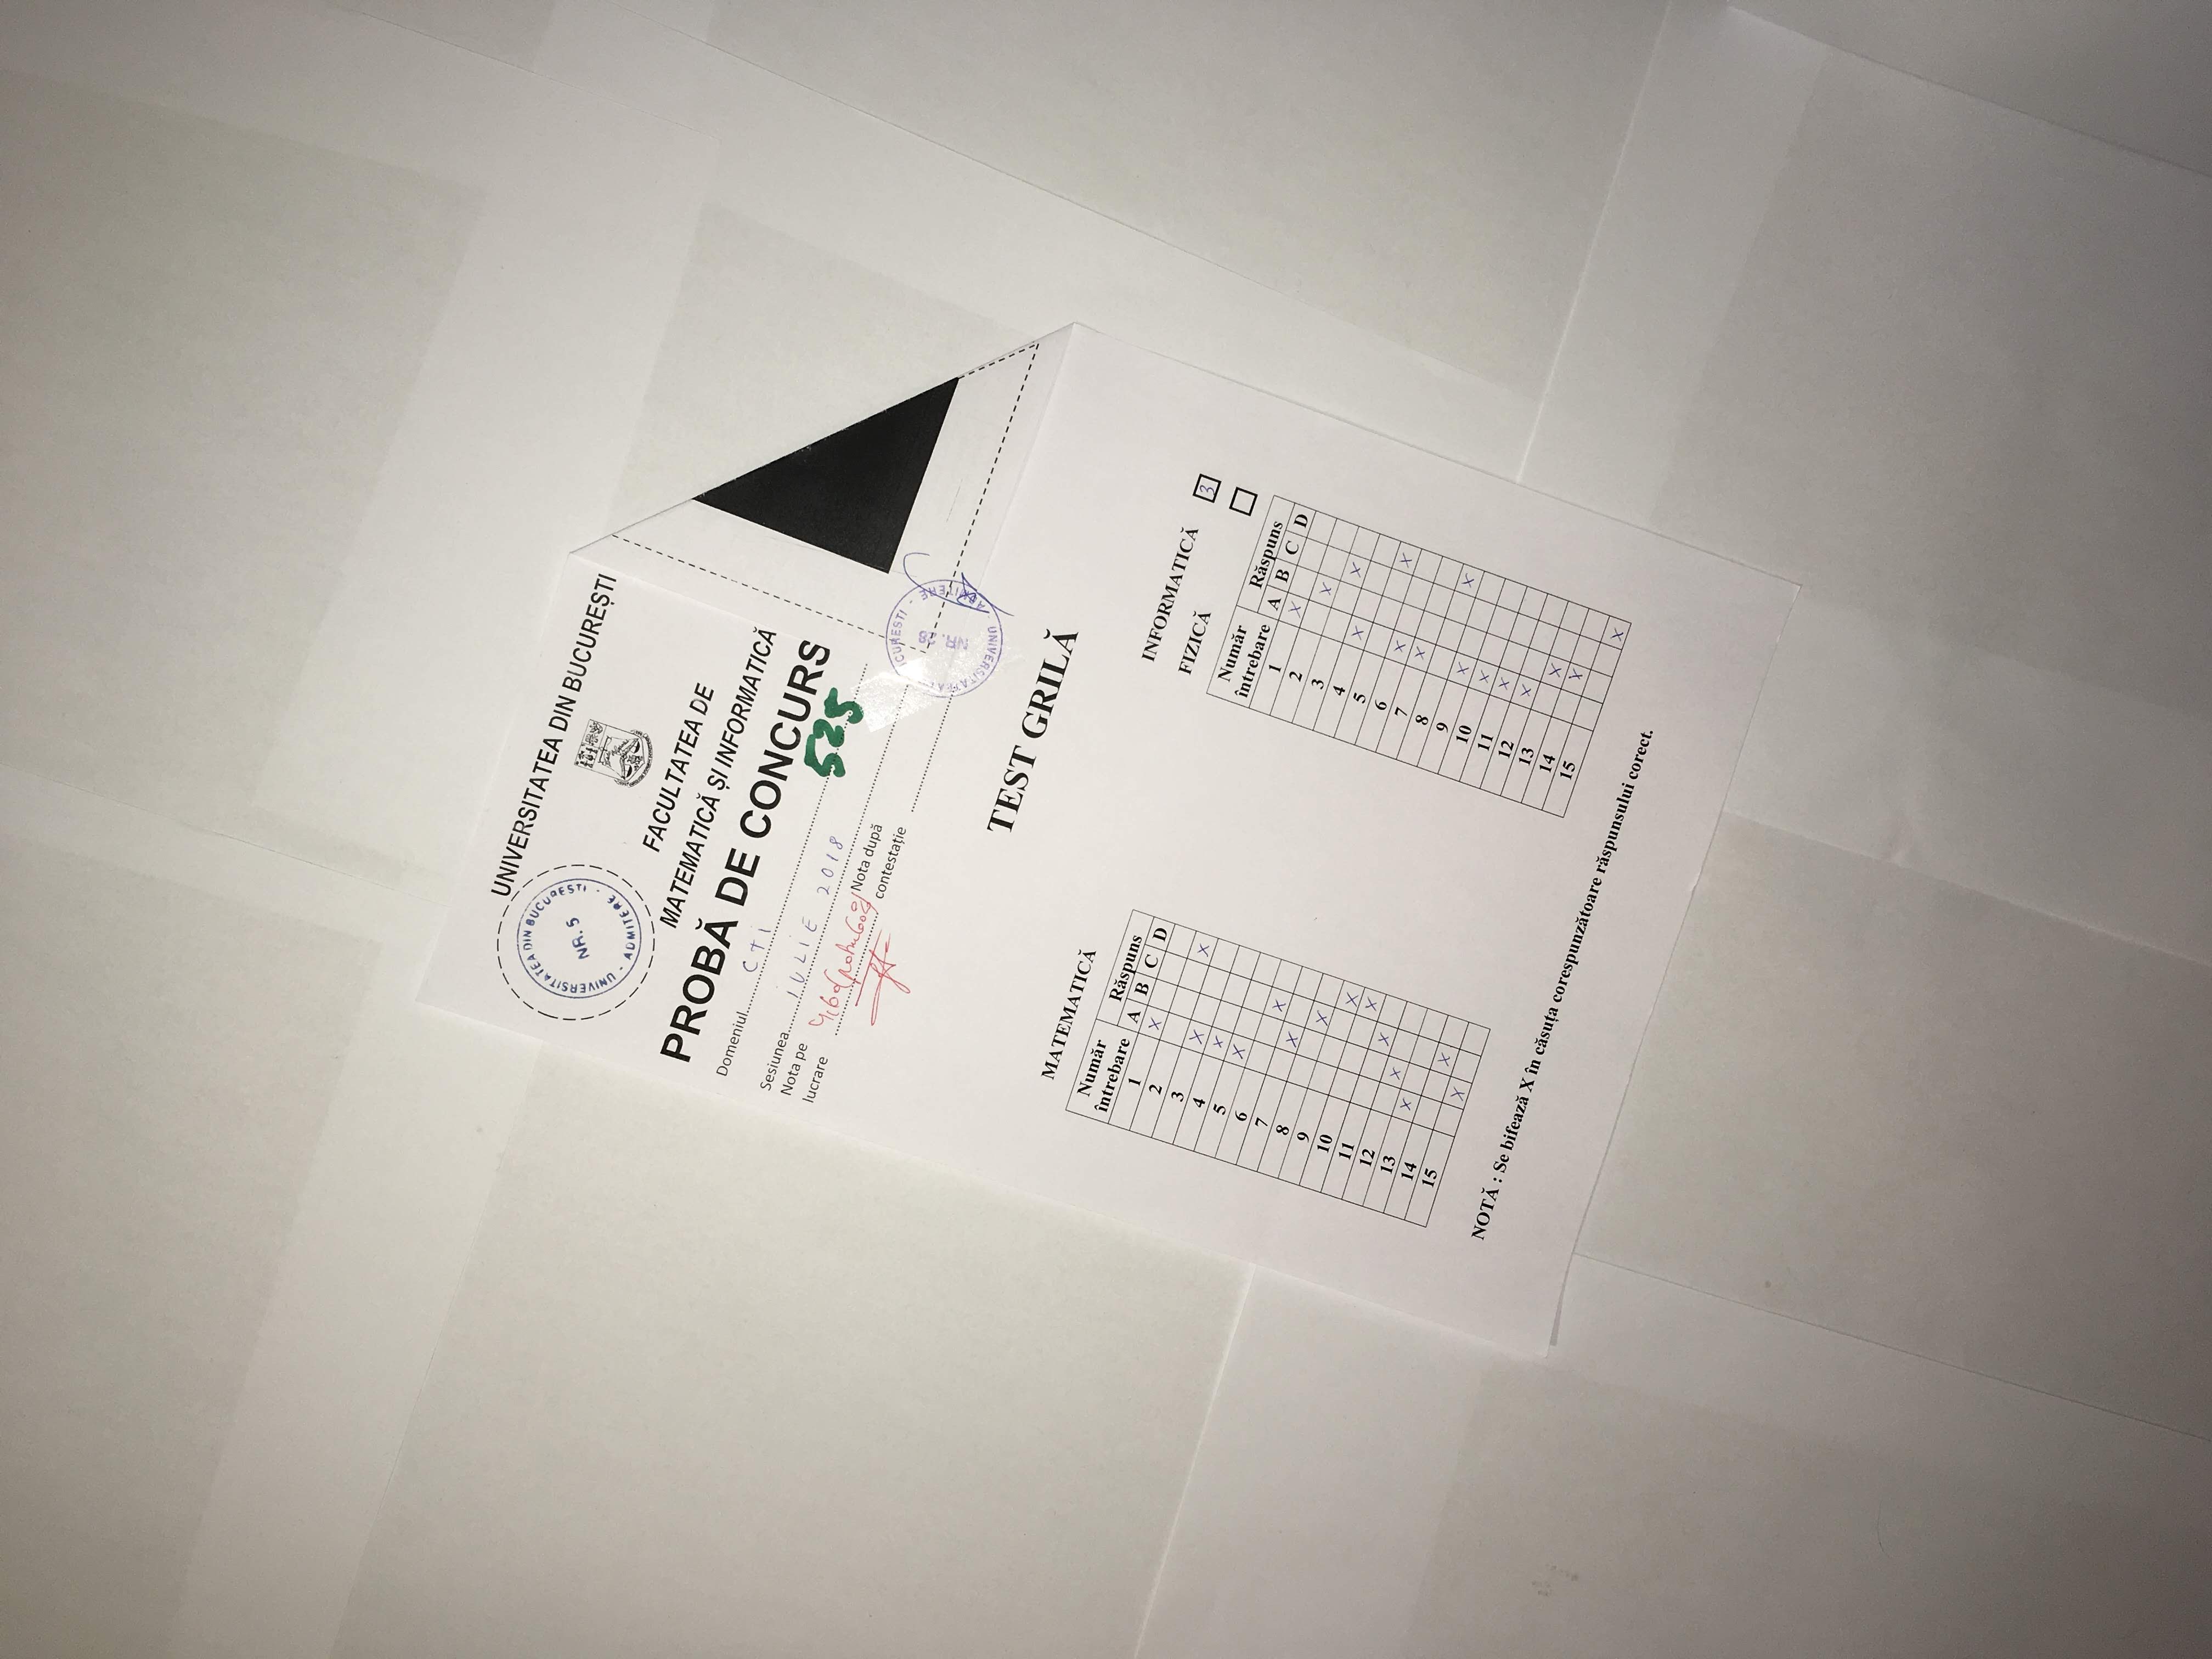 UNIVERSITATEA DIN BUCUREȘTI
UNIVERSITATEA DIN BUCUREȘTI - ADMITERE -
NR. 5
FACULTATEA DE
MATEMATICĂ ȘI INFORMATICĂ
PROBĂ DE CONCURS
Domeniul CTI
525
Sesiunea IULIE 2018
Nota pe
lucrare
Nota după
contestație
UNIVERSITATEA BUCUREȘTI - ADMITERE
NR. 28
TEST GRILĂ
MATEMATICĂ
Număr
întrebare
Răspuns
A B C D
1 X
2 X
3 X
4 X
5 X
6 X
7 X
8 X
9 X
10 X
11 X
12 X
13 X
14 X
15 X
INFORMATICĂ 3
FIZICĂ
Număr
întrebare
Răspuns
A B C D
1 X
2 X
3 X
4 X
5 X
6 X
7 X
8 X
9 X
10 X
11 X
12 X
13 X
14 X
15 X
NOTĂ : Se bifează X în căsuța corespunzătoare răspunsului corect.